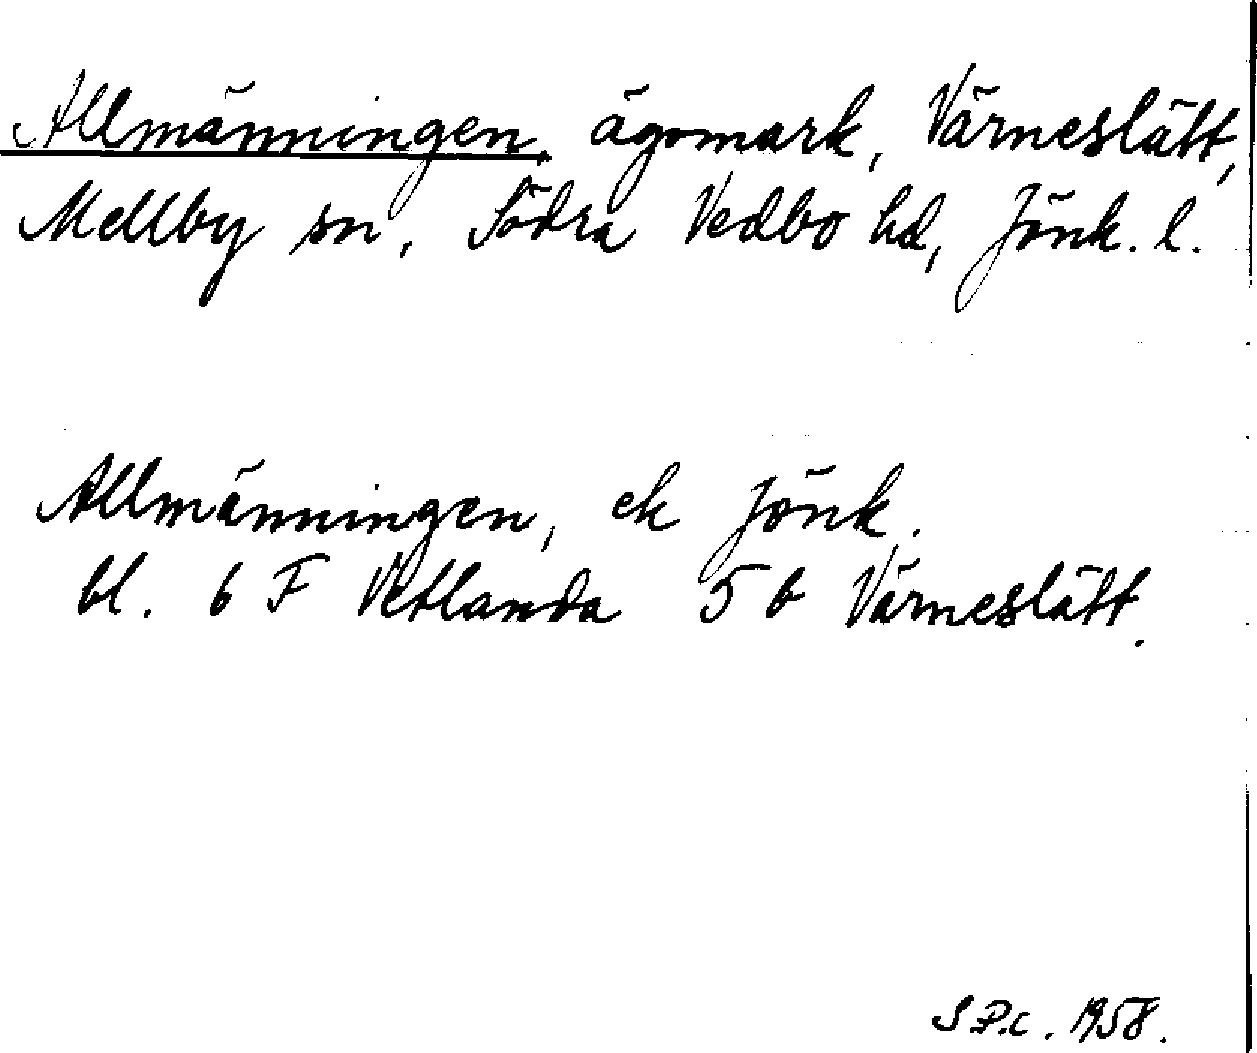 Allmänningen, ägomark, Värneslätt,
Mellby sn, Södra Vedbo hd, Jönk. l.
Allmänningen, ek Jönk.
bl. 6 F Vetlanda 5 b Värneslätt.
S.P.c. 1958.